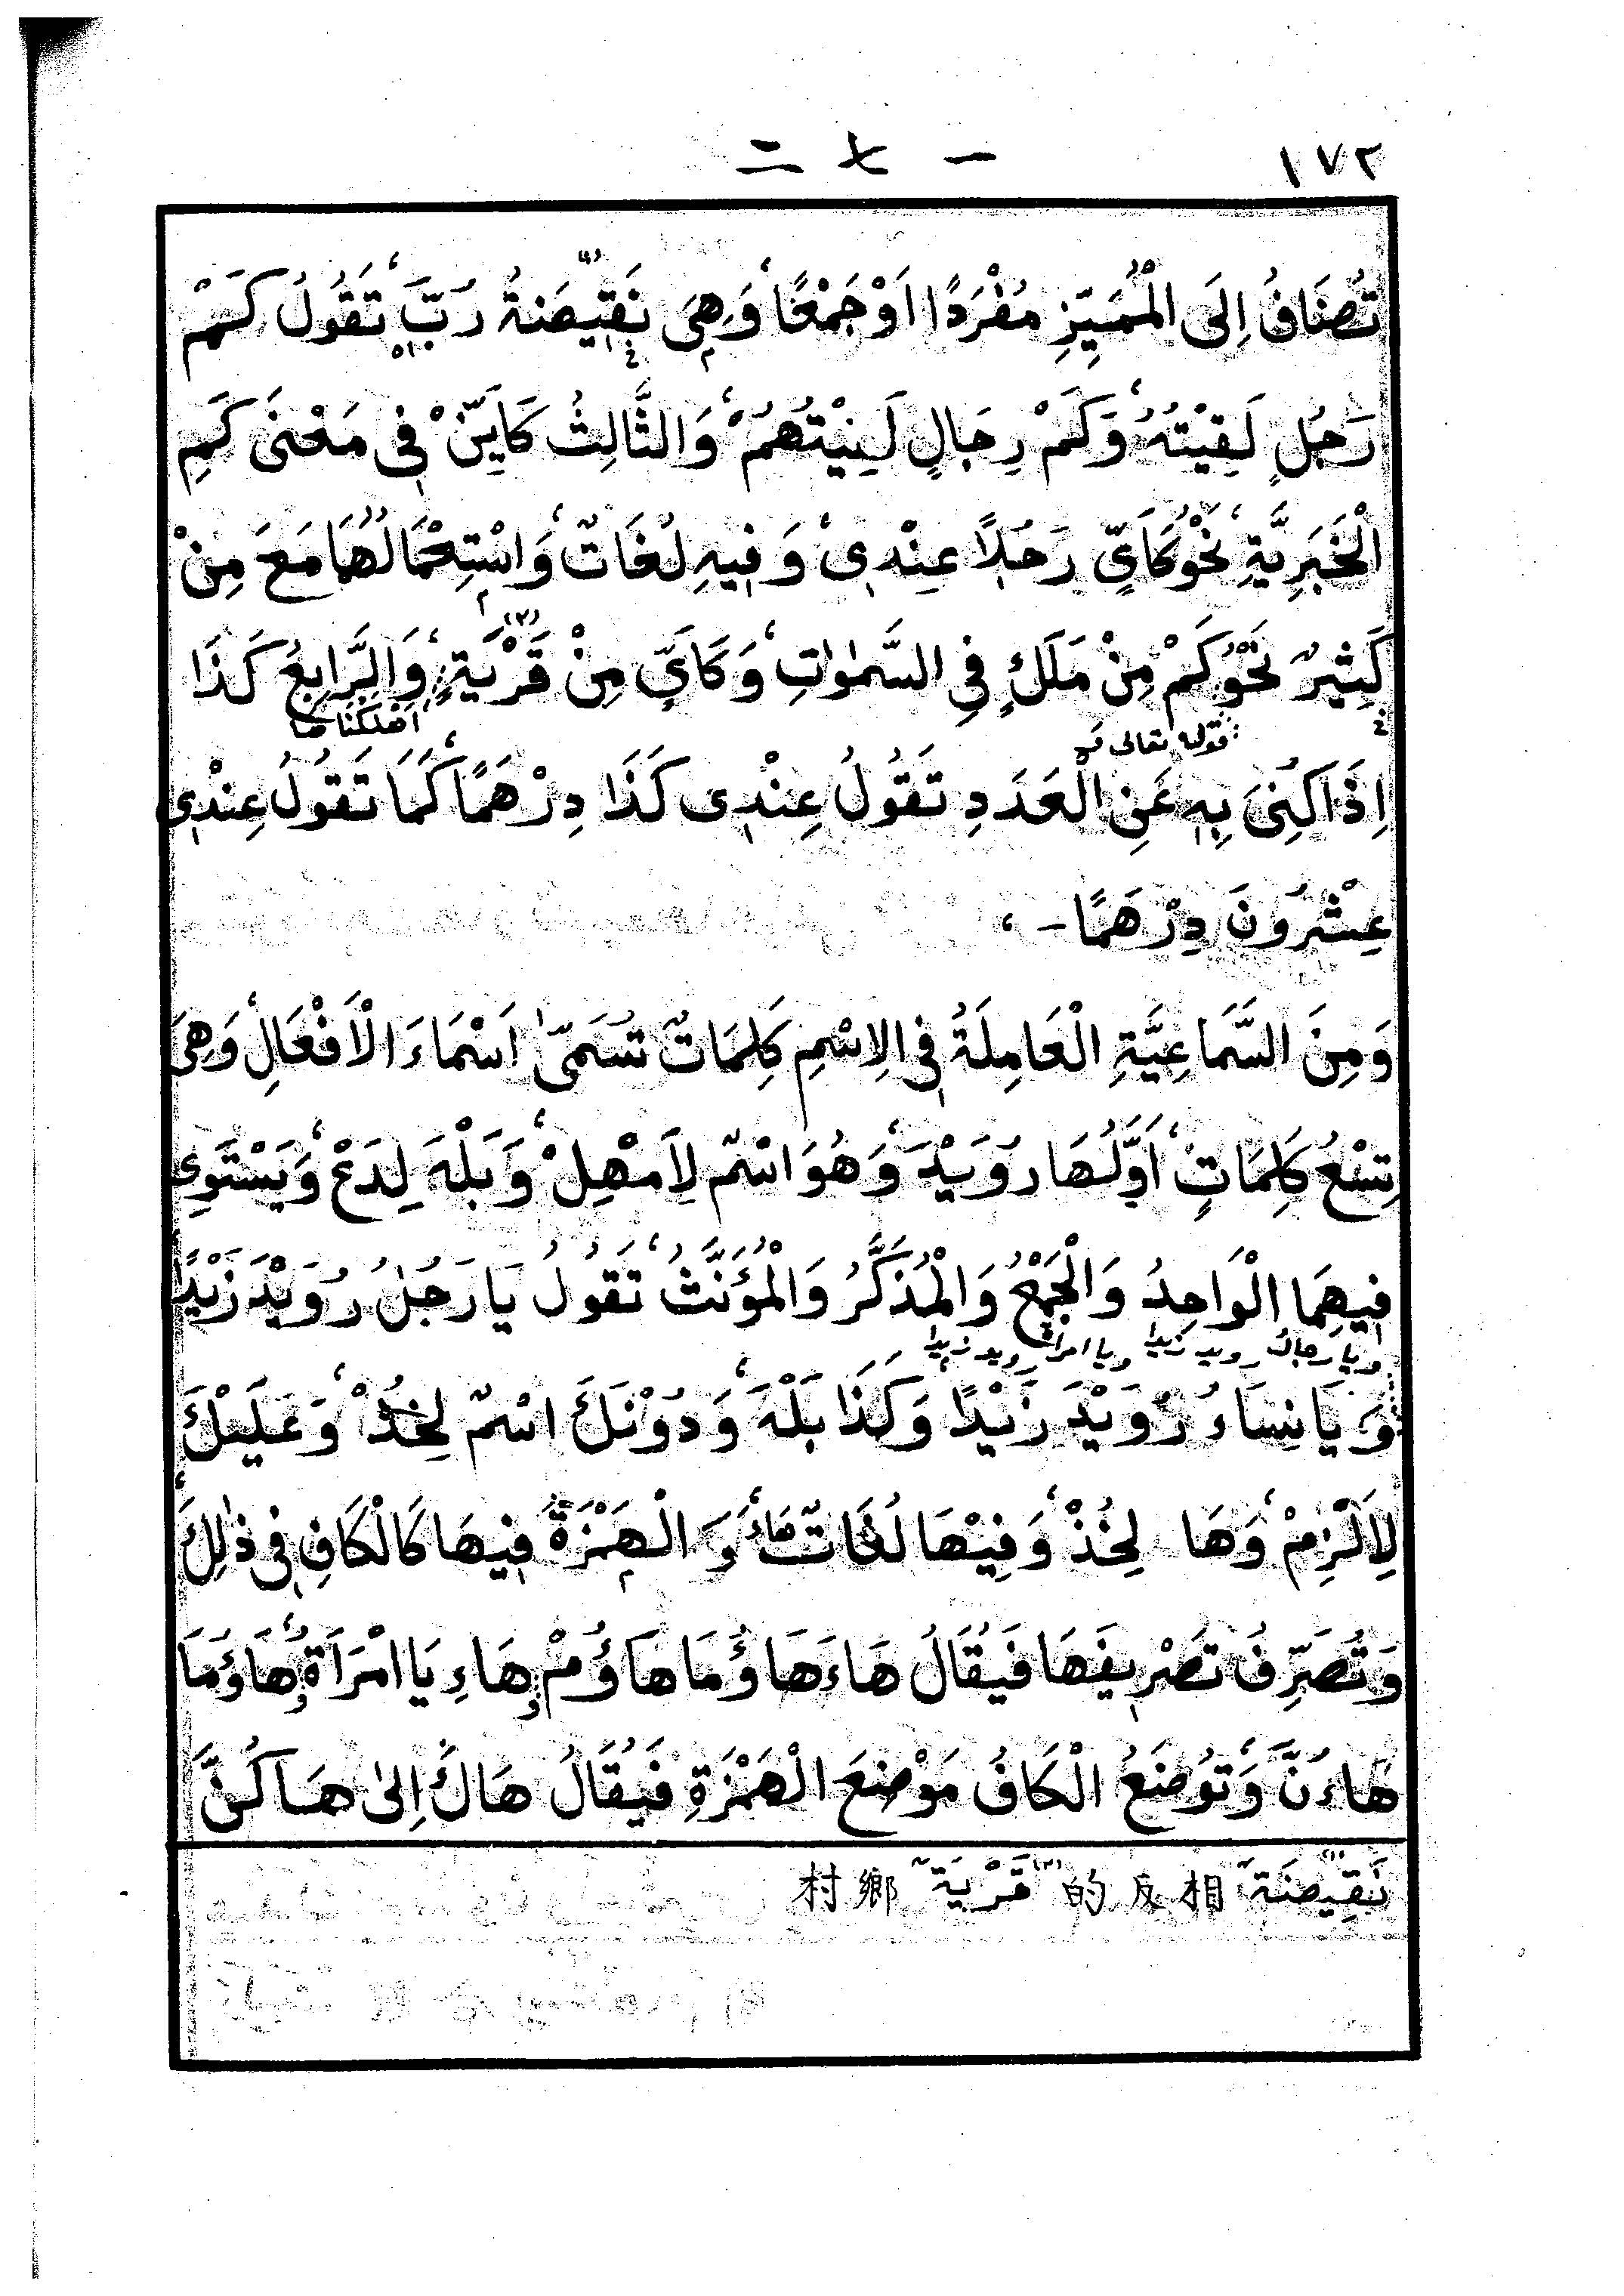 ١٧٢ 一七二
تُضَافُ اِلَى الْمُمَيِّزِ مُفْرَدًا اَوْ جَمْعًا، وَهِيَ نَقِيْضَةُ (١) رُبَّ، تَقُولُ كَمْ
رَجُلٍ لَقِيْتُهُ، وَكَمْ رِجَالٍ لَقِيْتُهُمْ، وَالثَّالِثُ كَاَيِّنْ فِى مَعْنَى كَمِ
الْخَبَرِيَّةِ، نَحْوُ كَاَيٍّ رَجُلًا عِنْدِى، وَفِيهِ لُغَاتٌ، وَاسْتِعْمَالُهَا مَعَ مِنْ
كَثِيْرٌ نَحْوُ كَمْ مِنْ مَلَكٍ فِى السَّمٰوٰاتِ، وَكَاَيٍّ مِنْ قَرْيَةٍ (٢)، وَالرَّابِعُ كَذَا
قوله تعالى اَهْلَكْنَاهَا
اِذَا كُنِىَ بِهِ عَنِ الْعَدَدِ تَقُولُ عِنْدِى كَذَا دِرْهَمًا، كَمَا تَقُولُ عِنْدِى
عِشْرُونَ دِرْهَمًا -،
وَمِنَ السَّمَاعِيَّةِ الْعَامِلَةُ فِى الِاسْمِ كَلِمَاتٌ تُسَمّٰى اَسْمَاءَ الْاَفْعَالِ، وَهِىَ
تِسْعُ كَلِمَاتٍ، اَوَّلُهَا رُوَيْدَ، وَهُوَ اسْمٌ لِاَمْهِلْ، وَبَلْهَ لِدَعْ، وَيَسْتَوِى
فِيهِمَا الْوَاحِدُ وَالْجَمْعُ وَالْمُذَكَّرُ وَالْمُؤَنَّثُ، تَقُولُ يَا رَجُلُ رُوَيْدَ زَيْدًا
ويا رجال رويد زيدا ويا امراة رويد زيدا
وَيَا نِسَاءُ رُوَيْدَ زَيْدًا، وَكَذَا بَلْهَ، وَدُوْنَكَ اسْمٌ لِخُذْ، وَعَلَيْكَ
لِاَلْزِمْ، وَهَا لِخُذْ، وَفِيْهَا لُغَاتٌ هَاْ، وَالْهَمْزَةُ فِيهَا كَالْكَافِ فِى ذٰلِكَ،
وَتُصَرِّفُ تَصْرِيفَهَا فَيُقَالُ هَاءَ هَاؤُمَا هَاؤُمْ، هَاءِ يَا امْرَاَةُ، هَاؤُمَا
هَاءُنَّ، وَتُوْضَعُ الْكَافُ مَوْضِعَ الْهَمْزَةِ فَيُقَالُ هَاكَ اِلىٰ هَاكُنَّ
(١) نَقِيْضَةٌ 相反的 (٢) قَرْيَةٌ 鄉村